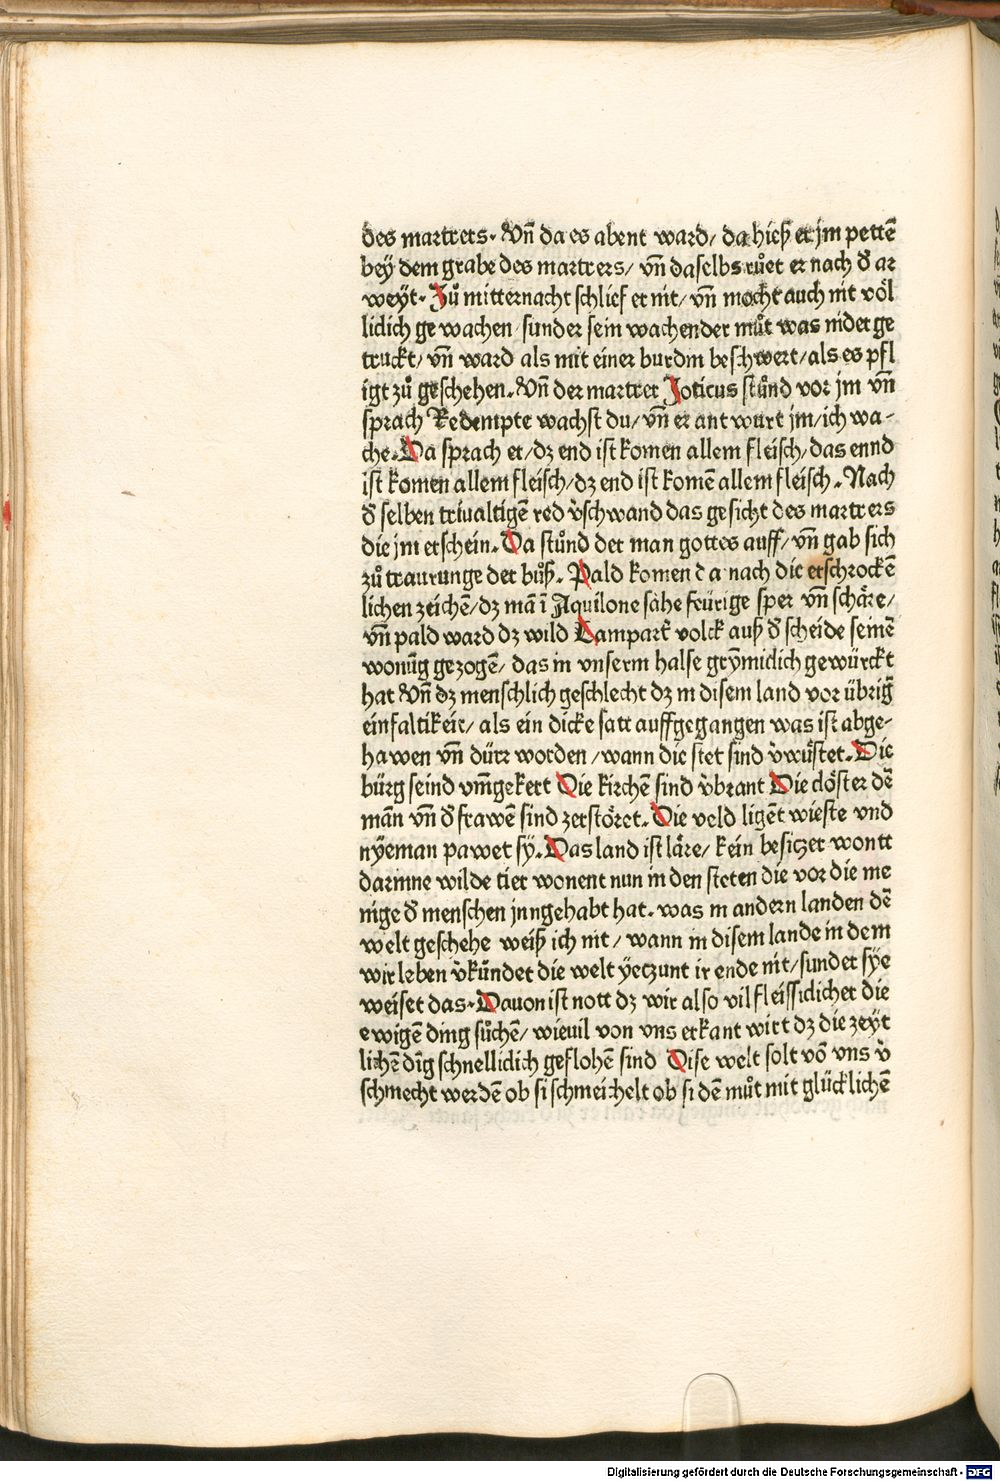 des martrers. Vn̄ da es abent ward/ da hieß er jm pettē
bey dem grabe des martrers/ vn̄ daselbs růet er nach d̓ ar
weyt. Zů mitternacht schlief er nit/ vn̄ mocht auch nit völ
lidich ge wachen sunder sein wachender můt was nider ge
truckt/ vn̄ ward als mit einer burdin beschwert/als es pfl
igt zů geschehen. Vn̄ der martrer Joticus stůnd vor jm vn̄
sprach Redempte wachst du/ vn̄ er antwurt jm/ich wa-
che. Da sprach er/dz end ist komen allem fleisch/das ennd
ist komen allem fleisch/dz end ist komē allem fleisch. Nach
d̓ selben triualtigē red v̓schwand das gesicht des martrers
die jm erschein. Da stůnd der man gottes auff/ vn̄ gab sich
zů traurunge der bůß. Pald komen da nach die erschrockē
lichen zeichē/dz mā ī Aquilone sahe feürige sper vn̄ schäre/
vn̄ pald ward dz wild Lampart̓ volck auß d̓ scheide seinē
wonūg gezogē/ das in vnserm halse grȳmidich gewürckt
hat Vn̄ dz menschlich geschlecht dz in disem land vor übriḡ
einfaltikeit/ als ein dicke satt auffgegangen was ist abge-
hawen vn̄ dürr worden /wann die stet sind v̓wůstet. Die
bürg seind vm̄gekert Die kirchē sind v̓brant Die clöster dē
mān vn̄ d̓ frawē sind zerstöret. Die veld ligēt wieste vnd
nyeman pawet sy. Das land ist läre/ kein besiczer wontt
darinne wilde tier wonent nun in den steten die vor die me
nige d̓ menschen jnngehabt hat. was in andern landen dē
welt geschehe weiß ich nit/ wann in disem lande in dem
wir leben v̓kündet die welt yetzunt ir ende nit/sunder sye
weiset das. Dauon ist nott dz wir also vil fleissidicher die
ewigen ding sůchē/ wieuil von vns erkant wirt dz die zeyt
lichē dīg schnellidich geflohē sind Dise welt solt vō vns v̓
schmecht werdē ob si schmeichelt ob si dē můt mit glücklichē
Digitalisierung gefördert durch die Deutsche Forschungsgemeinschaft - DFG